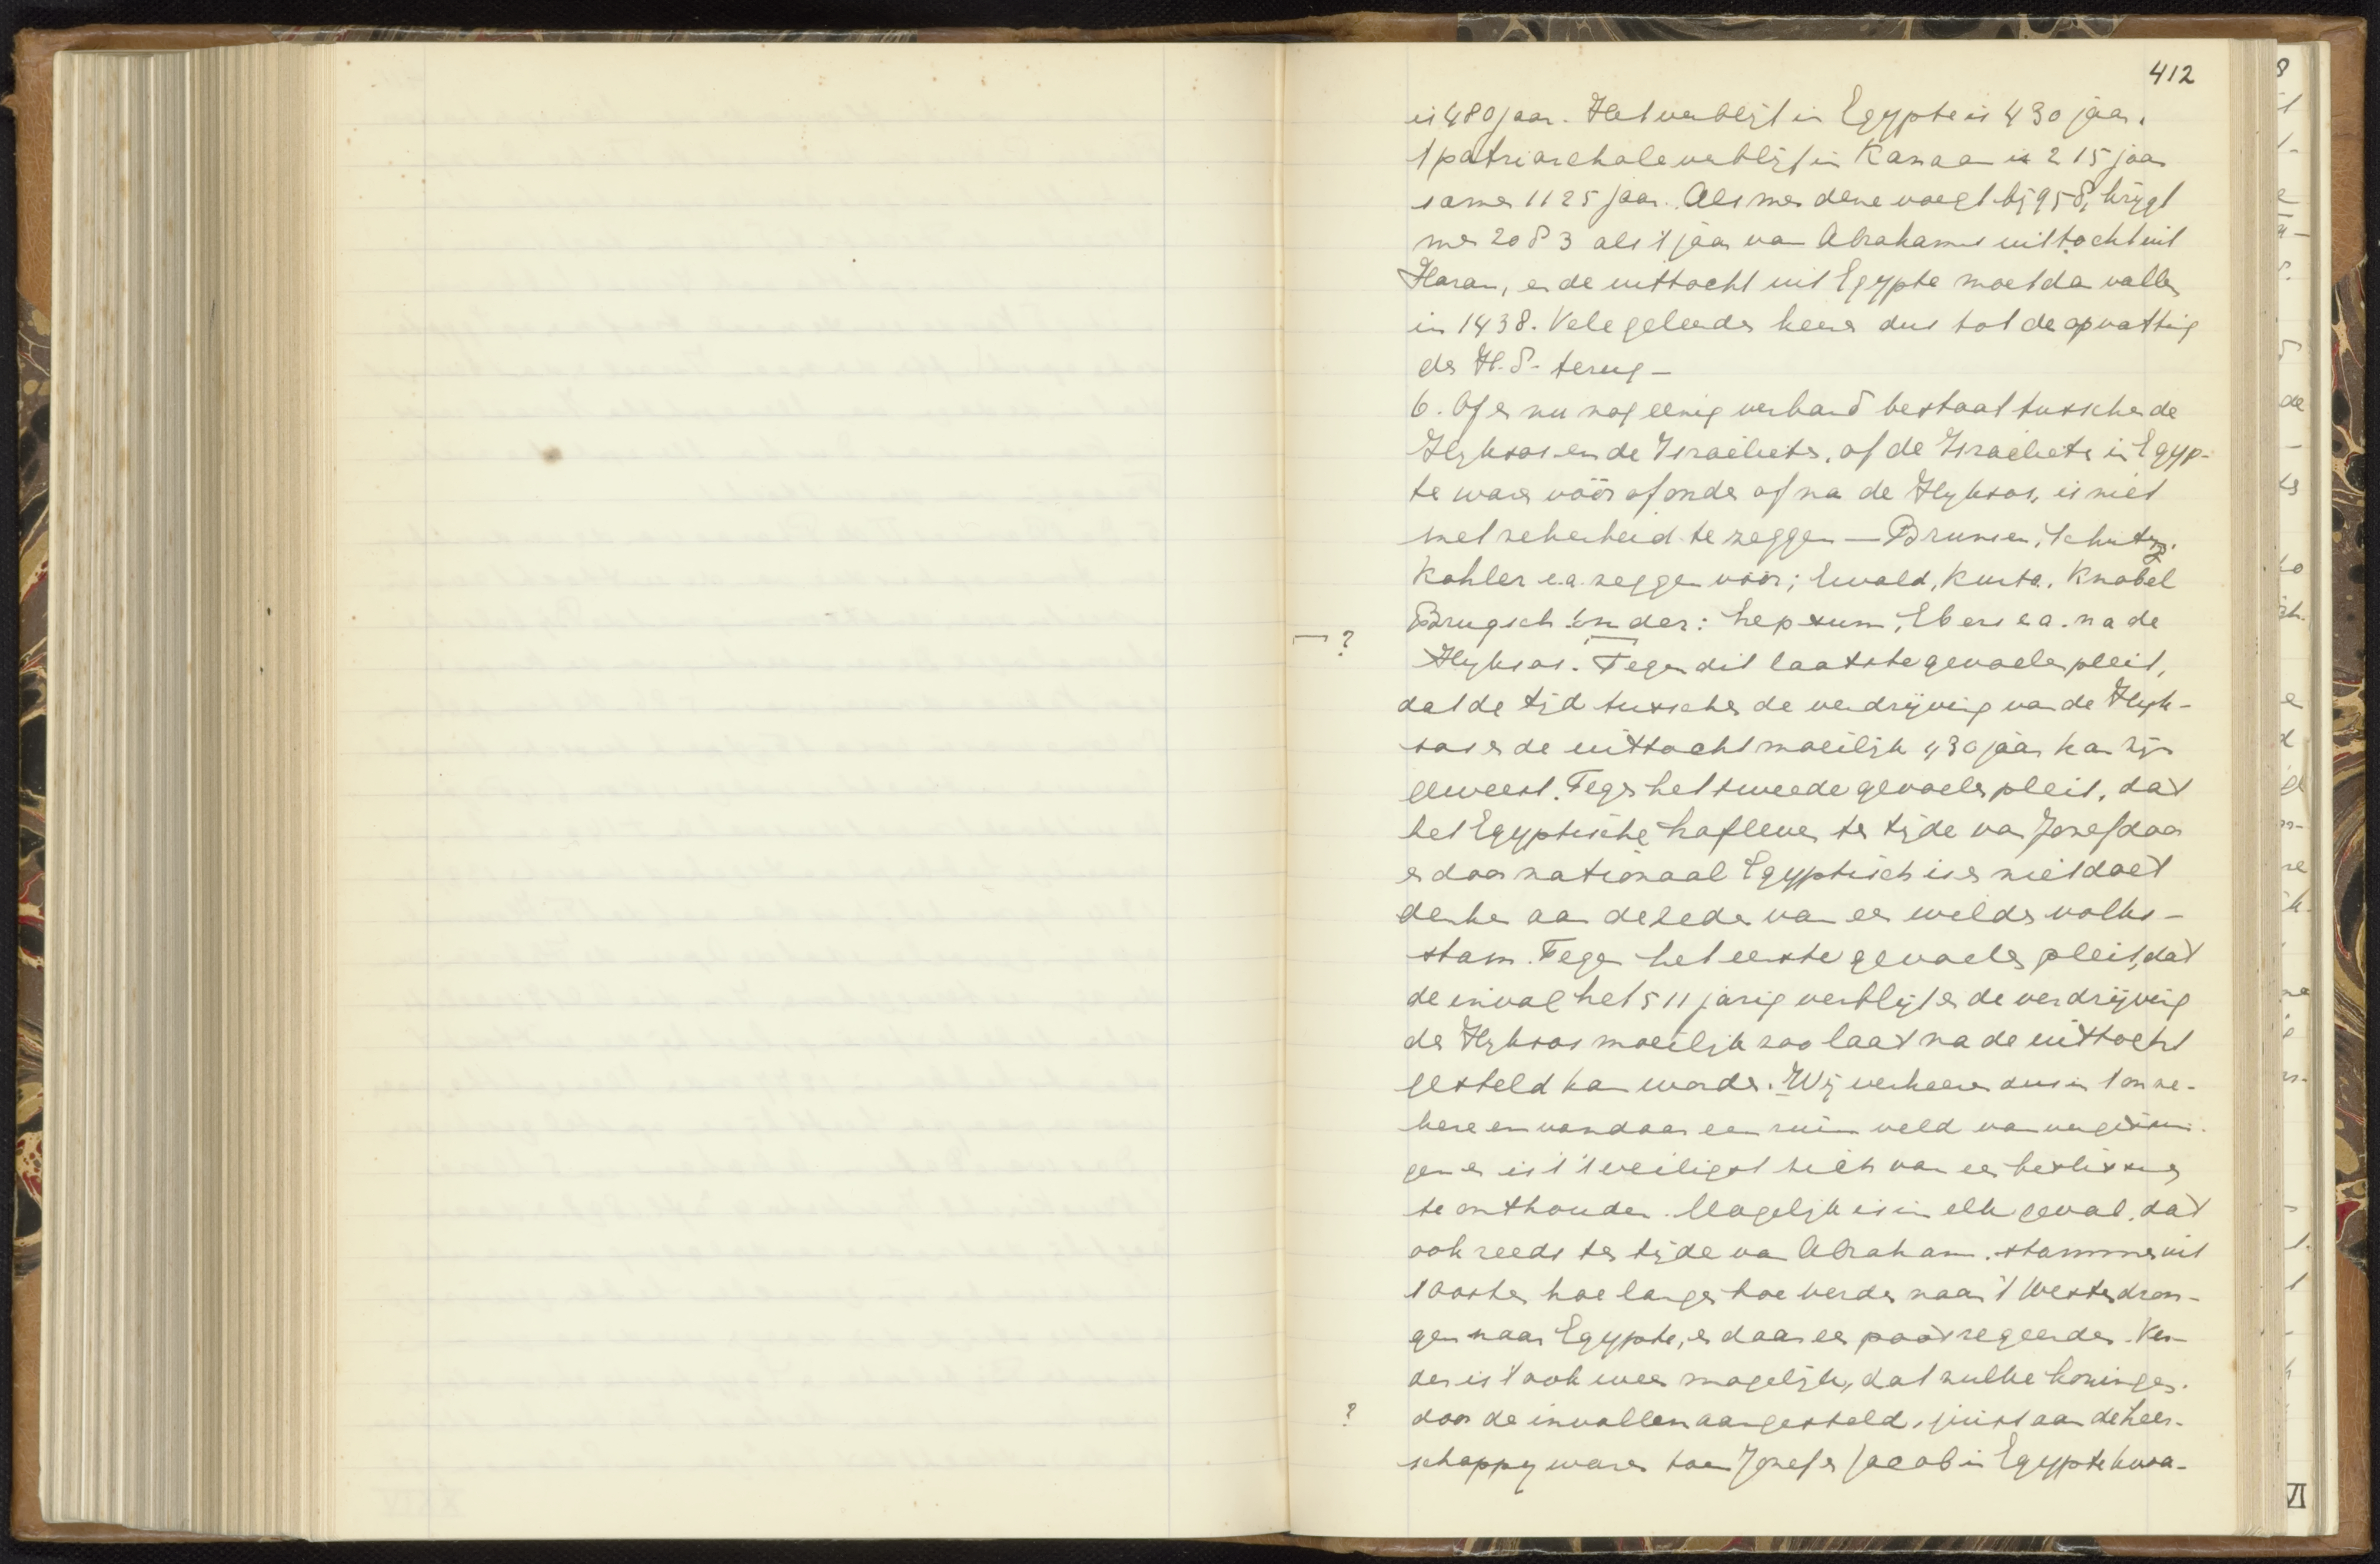 412
is 480 jaar. Het verblijf in Egypte is 430 jaar.
't patriarchale verblijf in Kanaan is 215 jaar
samen 1125 jaar. Als men deze voegt bij 958, krijgt
men 2083 als 't jaar van Abrahams uittocht uit
Haran, en de uittocht uit Egypte moet dan vallen
in 1438. Vele geleerden keeren dus tot de opvatting
der H.S. terug —
6. Of er nu nog eenig verband bestaat tusschen de
Hyksos en de Israelieten, of de Israelieten in Egyp-
te waren vóór of onder of na de Hyksos, is niet
met zekerheid te zeggen — Brunsen, Schutz,
Kohler e.a. zeggen vóór; Ewald, Kurtz, Knobel
Brugsch onder: Lepsum, Ebers e.a. na de
— ?
Hyksos. Tegen dit laatste gevoelen pleit,
dat de tijd tusschen de verdrijving van de Hyk-
sos en de uittocht moeilijk 430 jaar kan zijn
geweest. Tegen het tweede gevoelen pleit, dat
het Egyptische hofleven ten tijde van Jozef door
en door nationaal Egyptisch is en niet doet
denken aan de zeden van een wilden volks-
stam. Tegen het eerste gevoelen pleit, dat
de inval het 511 jarig verblijf en de verdrijving
der Hyksos moeilijk zoo laat na de uittocht
gesteld kan worden. Wij verkeeren dus in 't onze-
kere en vandaar een ruim veld van vergissin-
gen en is 't 't veiligst zich van een beslissing
te onthouden. Mogelijk is in elk geval, dat
ook reeds ten tijde van Abraham, stammen uit
't Oosten hoe langer hoe verder naar 't Westen dron-
gen naar Egypte, en daar een poos regeerden. Ver-
der is 't ook weer mogelijk, dat zulke koningen.
?
door de invallen aangesteld, juist aan de heer-
schappy waren toen Jozef en Jacob in Egypte kwa-
VI